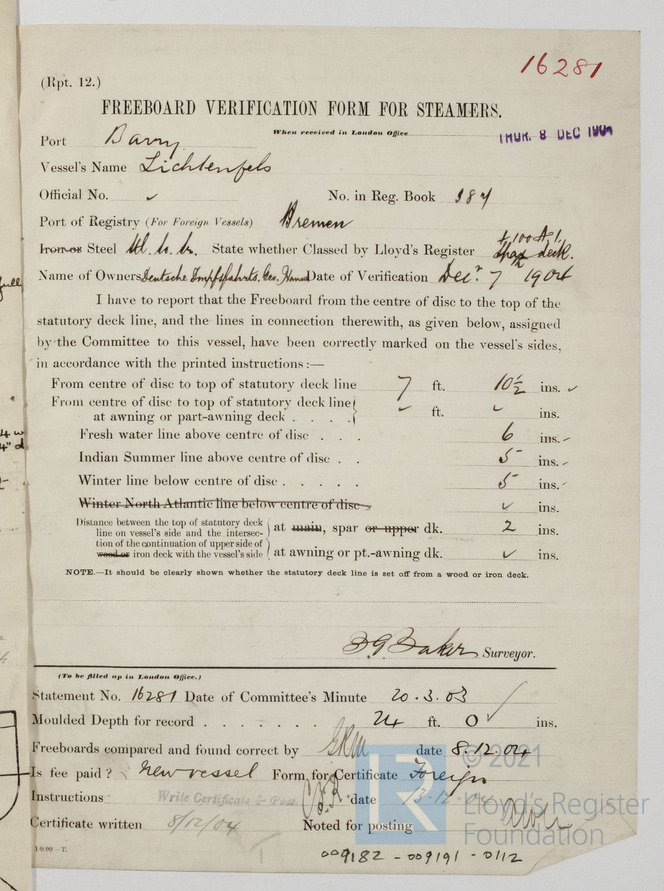 16281
(Rpt. 12.)
FREEBOARD VERIFICATION FORM FOR STEAMERS.
When received in London Office
THUR. 8 DEC 1904
Port Barry
Vessel's Name Lichtenfels
Official No. ✓ No. in Reg. Book 984
Port of Registry (For Foreign Vessels) Bremen
Iron or Steel State whether Classed by Lloyd's Register +100 A1 Spar deck.
Name of Owners Deutsche Date of Verification Decr 7 1904
I have to report that the Freeboard from the centre of disc to the top of the
statutory deck line, and the lines in connection therewith, as given below, assigned
by the Committee to this vessel, have been correctly marked on the vessel's sides,
in accordance with the printed instructions :—
From centre of disc to top of statutory deck line 7 ft. 10½ ins. ✓
From centre of disc to top of statutory deck line
at awning or part-awning deck . . . . ✓ ft. ✓ ins.
Fresh water line above centre of disc . . . 6 ins. ✓
Indian Summer line above centre of disc . . 5 ins. ✓
Winter line below centre of disc . . . . . 5 ins. ✓
Winter North Atlantic line below centre of disc ✓ ins.
Distance between the top of statutory deck
line on vessel's side and the intersec-
tion of the continuation of upper side of
wood or iron deck with the vessel's side
at main, spar or upper dk. 2 ins.
at awning or pt.-awning dk. ✓ ins.
NOTE.—It should be clearly shown whether the statutory deck line is set off from a wood or iron deck.
Baker Surveyor.
(To be filled up in London Office.)
Statement No. 16281 Date of Committee's Minute 20.3.03 ✓
Moulded Depth for record . . . . . . . 24 ft. 0 ✓ ins.
Freeboards compared and found correct by date 8.12.04
Is fee paid? New vessel Form for Certificate Foreign
Instructions Write Certificate & Post. date 13-12-04
Certificate written 8/12/04 Noted for posting
© 2021
Lloyd's Register
Foundation
009182 - 009191 - 0112